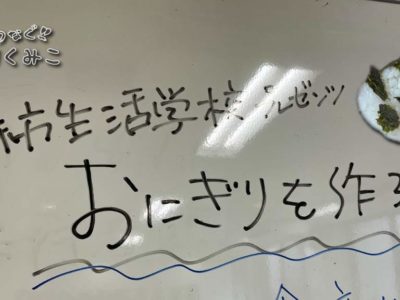 つなぐ!
くみこ
柿生活学校プレゼンツ
おにぎりを作ろ